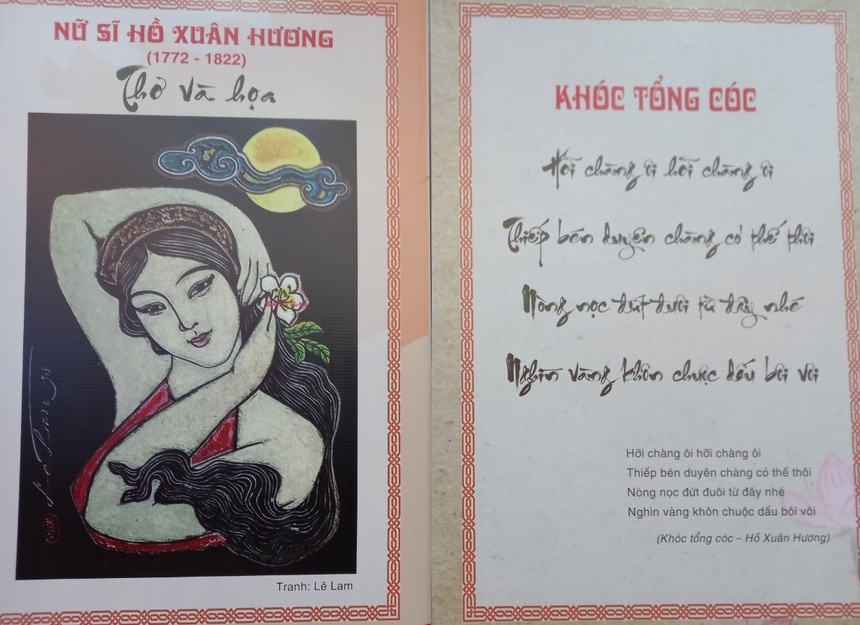 NỮ SĨ HỒ XUÂN HƯƠNG
(1772 - 1822)
Thơ và họa
Tranh: Lê Lam
KHÓC TỔNG CÓC
Hỡi chàng ôi hỡi chàng ôi
Thiếp bén duyên chàng có thế thôi
Nòng nọc đứt đuôi từ đây nhé
Nghìn vàng khôn chuộc dấu bôi vôi
Hỡi chàng ôi hỡi chàng ôi
Thiếp bén duyên chàng có thế thôi
Nòng nọc đứt đuôi từ đây nhé
Nghìn vàng khôn chuộc dấu bôi vôi
(Khóc tổng cóc - Hồ Xuân Hương)